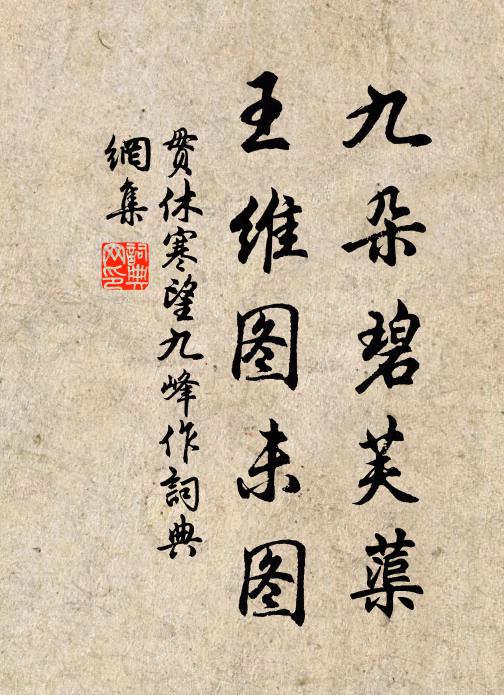 九朵碧芙蕖
王维图未图
贯休寒望九峰作词典
網集
詞典網印